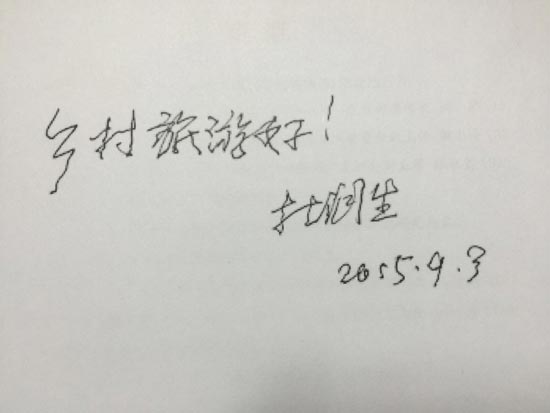 乡村旅游好!
杜润生
2015.9.3